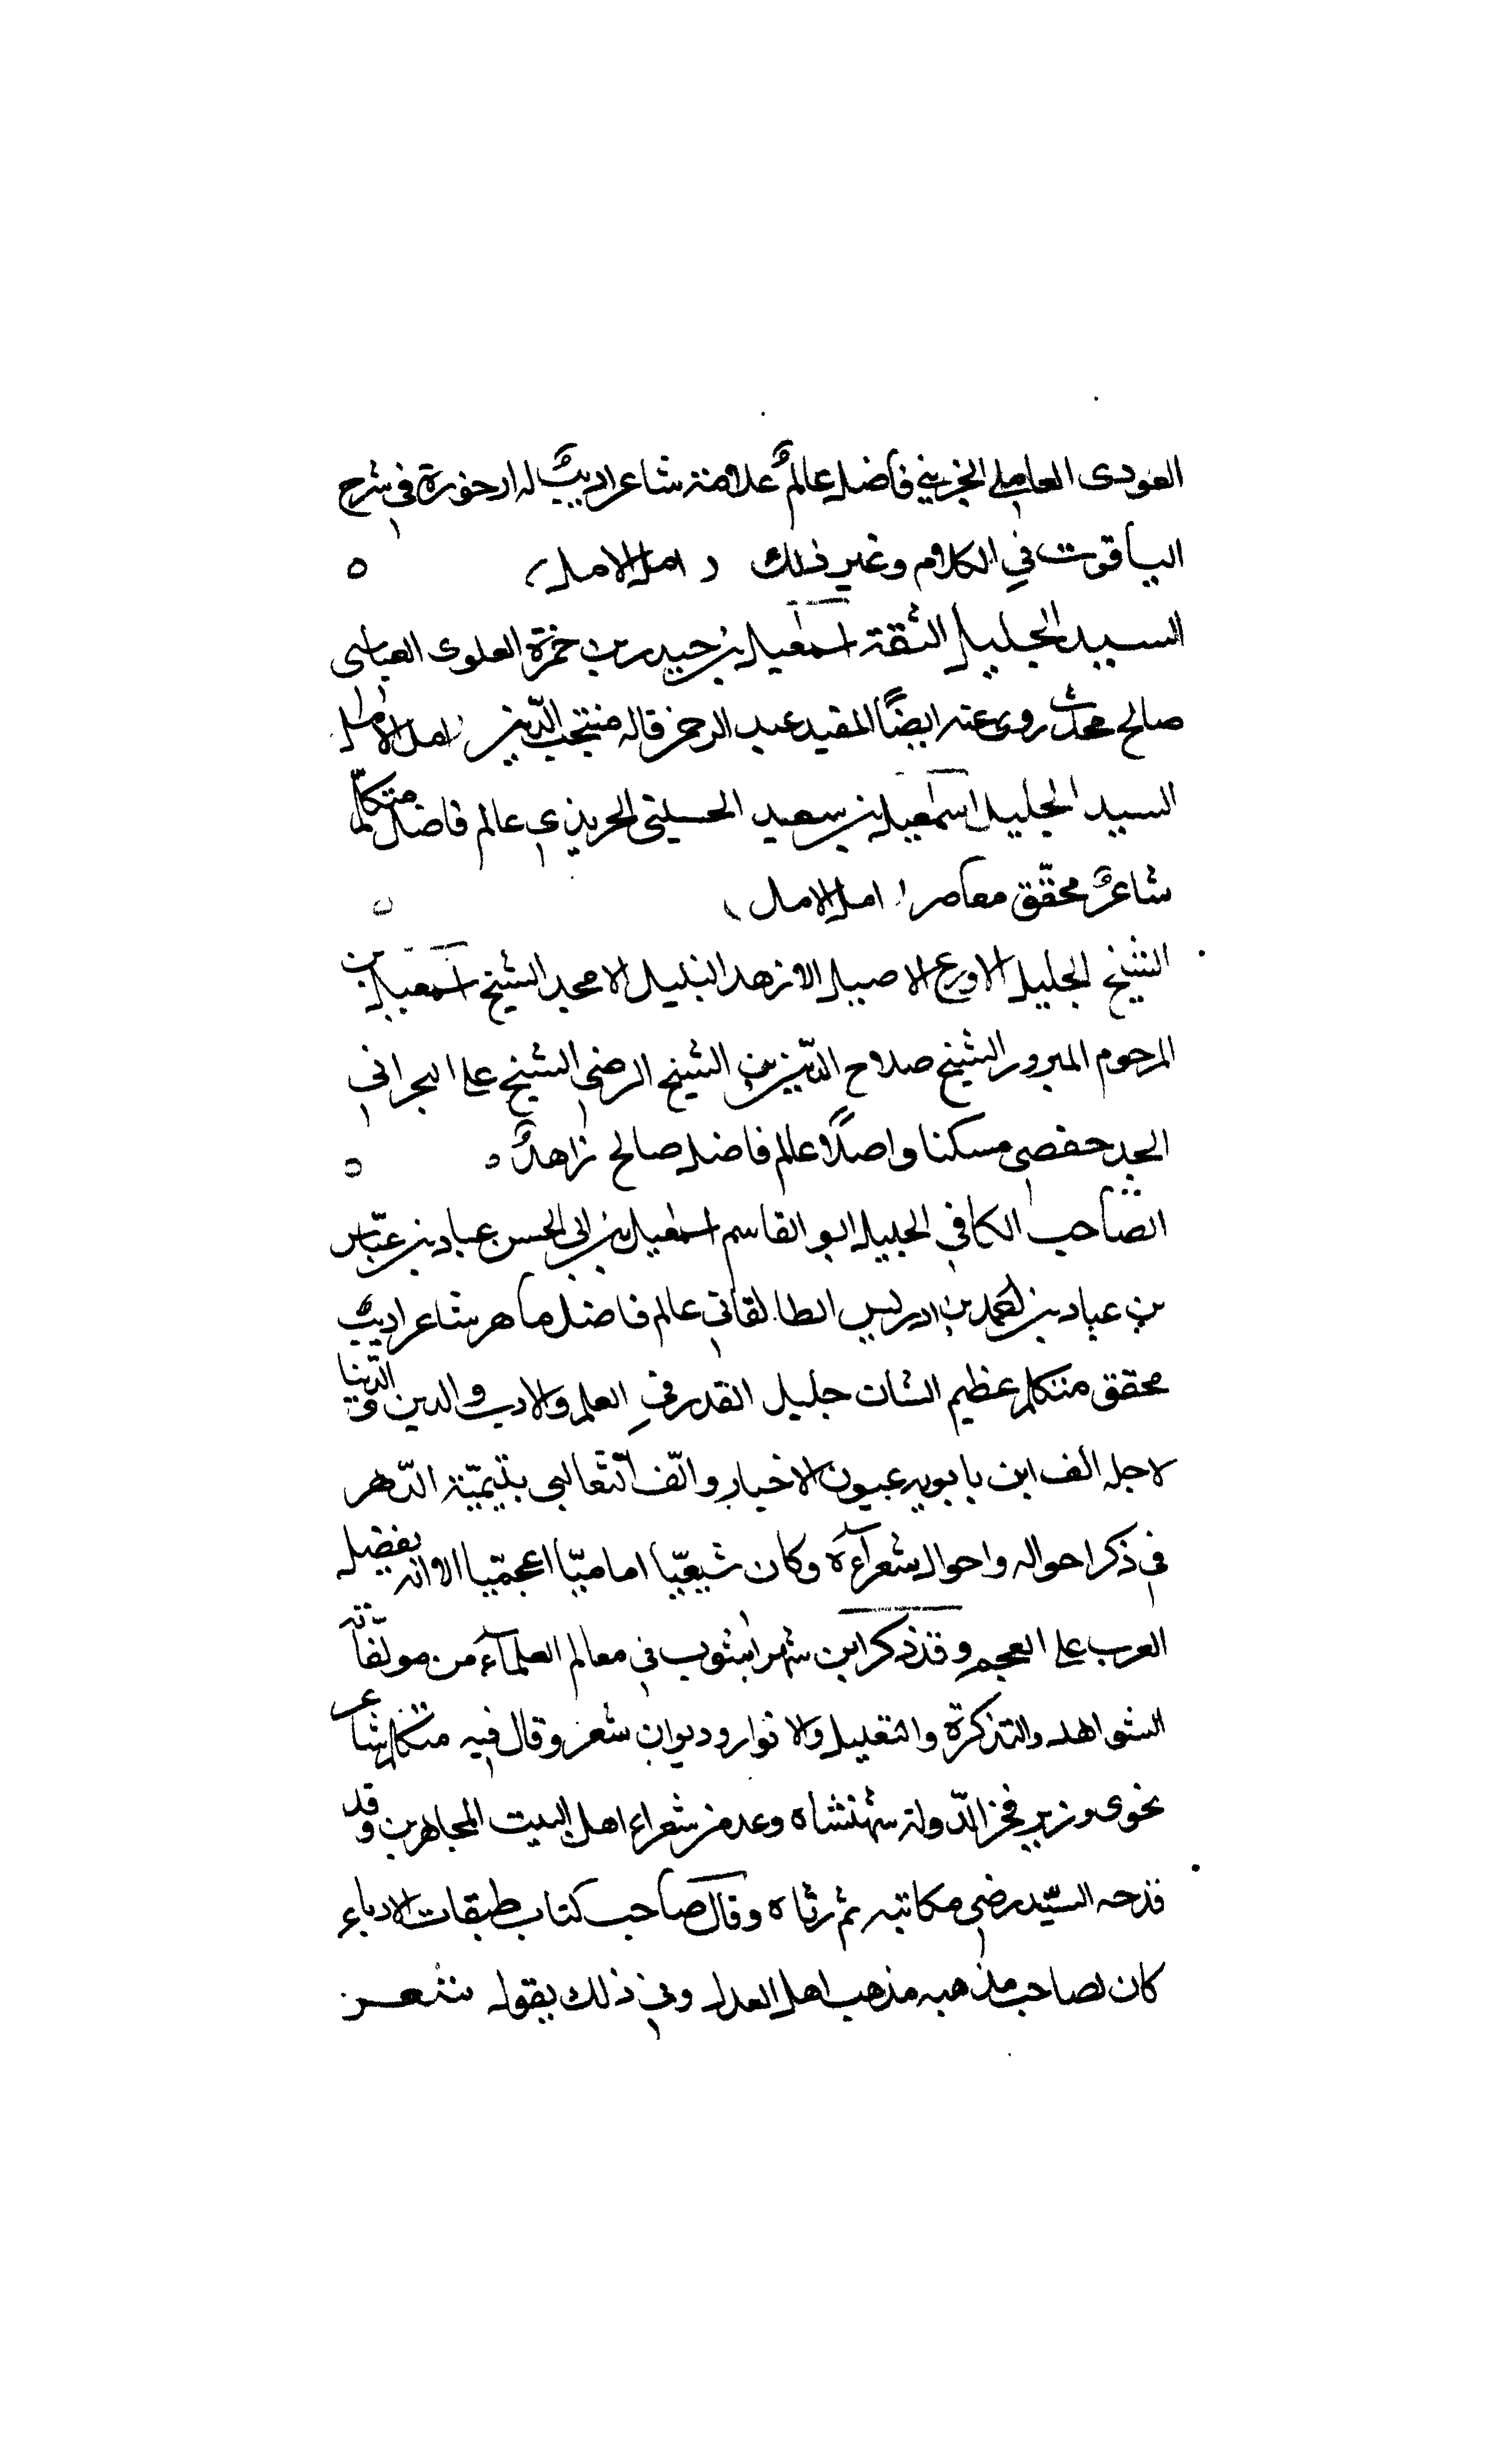 العودى العاملى الجزينى فاضل عالمٌ علامة شاعر اديبٌ له ارجوزة فى شرح
الياقوت فى الكلام وغير ذلك ( امل الامل )
السيد الجليل الثقة اسمعيل بن حيدر بن حمزة العلوى العباسى
صالح محدث روى عنه ايضًا المفيد عبد الرحمن قاله منتجب الدّين امل الامل
السيد الجليل اسمعيل بن سعيد الحسينى الحريذى عالم فاضل متكلّم
شاعرٌ محقّق معاصر ( امل الامل )
الشيخ الجليل الاورع الاصيل الازهد النبيل الامجد الشيخ اسمعيل بن
المرحوم المبرور الشيخ صلاح الدّين بن الشيخ الرضى الشيخ على البحرانى
الجد حفصى مسكنا واصلًا عالم فاضل صالح زاهدٌ
الصّاحب الكافى الجليل ابو القاسم اسمعيل بن ابى الحسن عباد بن عبّاس
بن عباد بن احمد بن ادريس الطالقانى عالم فاضل ماهر شاعر اديبٌ
محقق متكلم عظيم الشان جليل القدر فى العلم والادب والدين والدّنيا
لاجله الف ابن بابويه عيون الاخبار والّف الثّعالبى يتيميّة الدّهر
فى ذكر احواله واحوال شعرآءه وكان شيعيّا اماميّا اعجميّا الا انه يفضل
العرب على العجم وقد ذكر ابن شهراشوب فى معالم العلمآء من مولّفاته
الشواهد والتذكرة والتعليل والانوار وديوان شعر وقال فيه متكلم شاعر
نحوى وزير فخر الدّولة شهنشاه وعد من شعراء اهل البيت المجاهرين وقد
قدحه السيّد رضى مكاتبه ثم رثاه وقال صاحب كتاب طبقات الادباء
كان لصاحب مذهبه مذهب اهل العدل وفى ذلك يقوله شعر